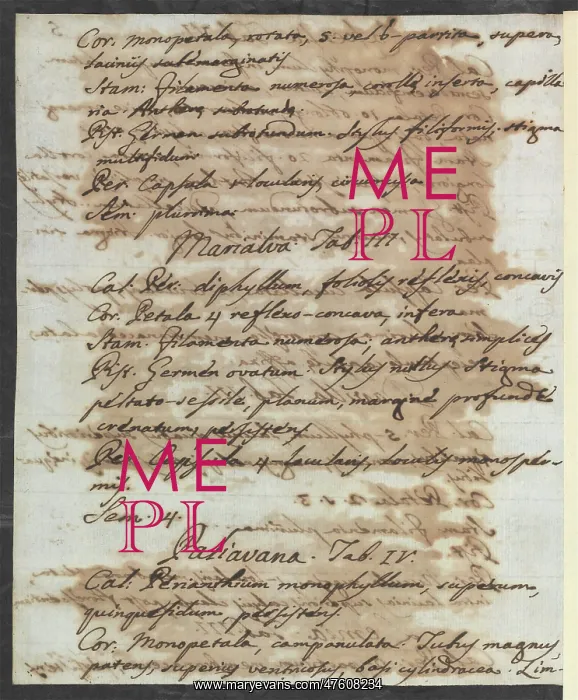 Cor. monopetala, rotata, 5. vel 6-partita, supera,
laciniis
Stam: filamenta numerosa, corollæ inserta, capilla
ria. Antheræ subrotundæ.
Pist. Germen subrotundum. Stylus filiformis. Stigma
multifidum
Per. Capsula locularis
Sem. plurima.
Marialva. Tab. III.
Cal. Per. diphyllum, foliolis reflexis, concavis
Cor. Petala 4 reflexo-concava, infera
Stam. filamenta numerosa; antheræ simplices
Pist. Germen ovatum. Stylus nullus. Stigma
peltato-sessile, planum, margine profunde
crenatum, persistens
Per. Capsula 4-locularis, loculis monosper-
mis.
Sem. 4.
Tab. IV.
Cal. Perianthium monophyllum, superum,
quinquefidum, persistens
Cor. Monopetala, campanulata. Tubus magnus
patens, superius ventricosus, basi cylindracea. Lim-
ME
PL
ME
PL
www.maryevans.com/47608294